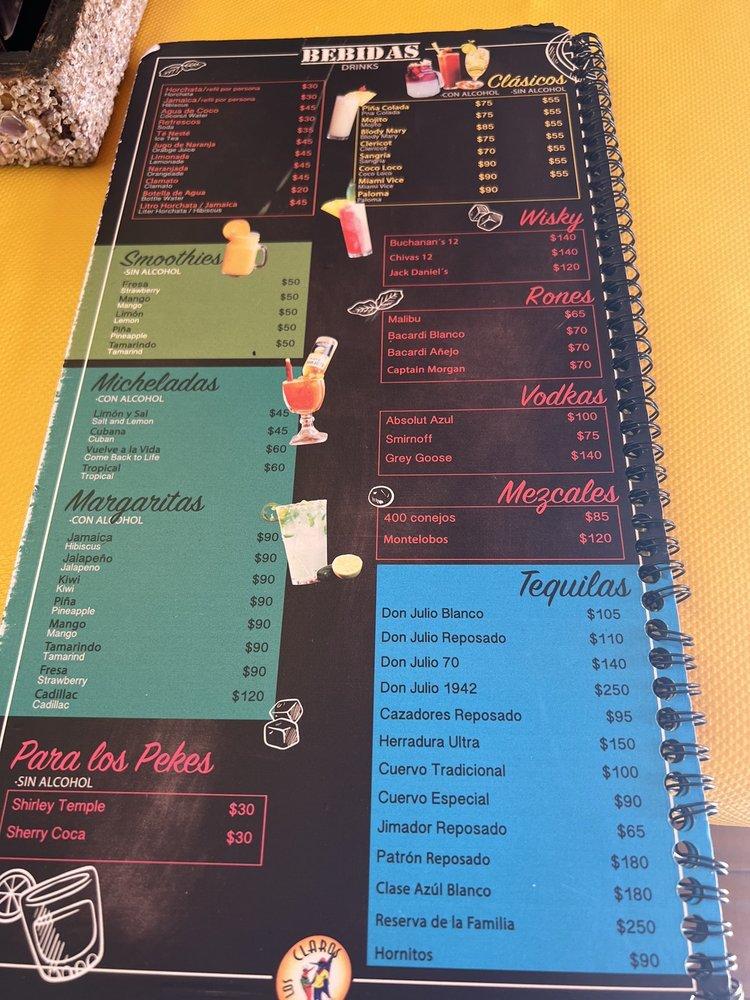 BEBIDAS
DRINKS
Horchata/refil por persona $30
Horchata
Jamaica/refil por persona $30
Hibiscus
Agua de Coco $45
Coconut Water
Refrescos $30
Soda
Té Nesté $35
Ice Tea
Jugo de Naranja $45
Orabge Juice
Limonada $45
Lemonade
Naranjada $45
Orangeade
Clamato $45
Clamato
Botella de Agua $20
Bottle Water
Litro Horchata / Jamaica $45
Liter Horchata / Hibiscus
Smoothies
-SIN ALCOHOL
Fresa $50
Strawberry
Mango $50
Mango
Limón $50
Lemon
Piña $50
Pineapple
Tamarindo $50
Tamarind
Micheladas
-CON ALCOHOL
Limón y Sal $45
Salt and Lemon
Cubana $45
Cuban
Vuelve a la Vida $60
Come Back to Life
Tropical $60
Tropical
Margaritas
-CON ALCOHOL
Jamaica $90
Hibiscus
Jalapeño $90
Jalapeno
Kiwi $90
Kiwi
Piña $90
Pineapple
Mango $90
Mango
Tamarindo $90
Tamarind
Fresa $90
Strawberry
Cadillac $120
Cadillac
Para los Pekes
-SIN ALCOHOL
Shirley Temple $30
Sherry Coca $30
Clásicos
-CON ALCOHOL -SIN ALCOHOL
Piña Colada $75 $55
Pina Colada
Mojito $75 $55
Mojito
Blody Mary $85
Blody Mary
Clericot $75 $55
Clericot
Sangria $70 $55
Sangria
Coco Loco $90 $55
Coco Loco
Miami Vice $90 $55
Miami Vice
Paloma $90
Paloma
Wisky
Buchanan´s 12 $140
Chivas 12 $140
Jack Daniel´s $120
Rones
Malibu $65
Bacardi Blanco $70
Bacardi Añejo $70
Captain Morgan $70
Vodkas
Absolut Azul $100
Smirnoff $75
Grey Goose $140
Mezcales
400 conejos $85
Montelobos $120
Tequilas
Don Julio Blanco $105
Don Julio Reposado $110
Don Julio 70 $140
Don Julio 1942 $250
Cazadores Reposado $95
Herradura Ultra $150
Cuervo Tradicional $100
Cuervo Especial $90
Jimador Reposado $65
Patrón Reposado $180
Clase Azúl Blanco $180
Reserva de la Familia $250
Hornitos $90
LOS CLAROS